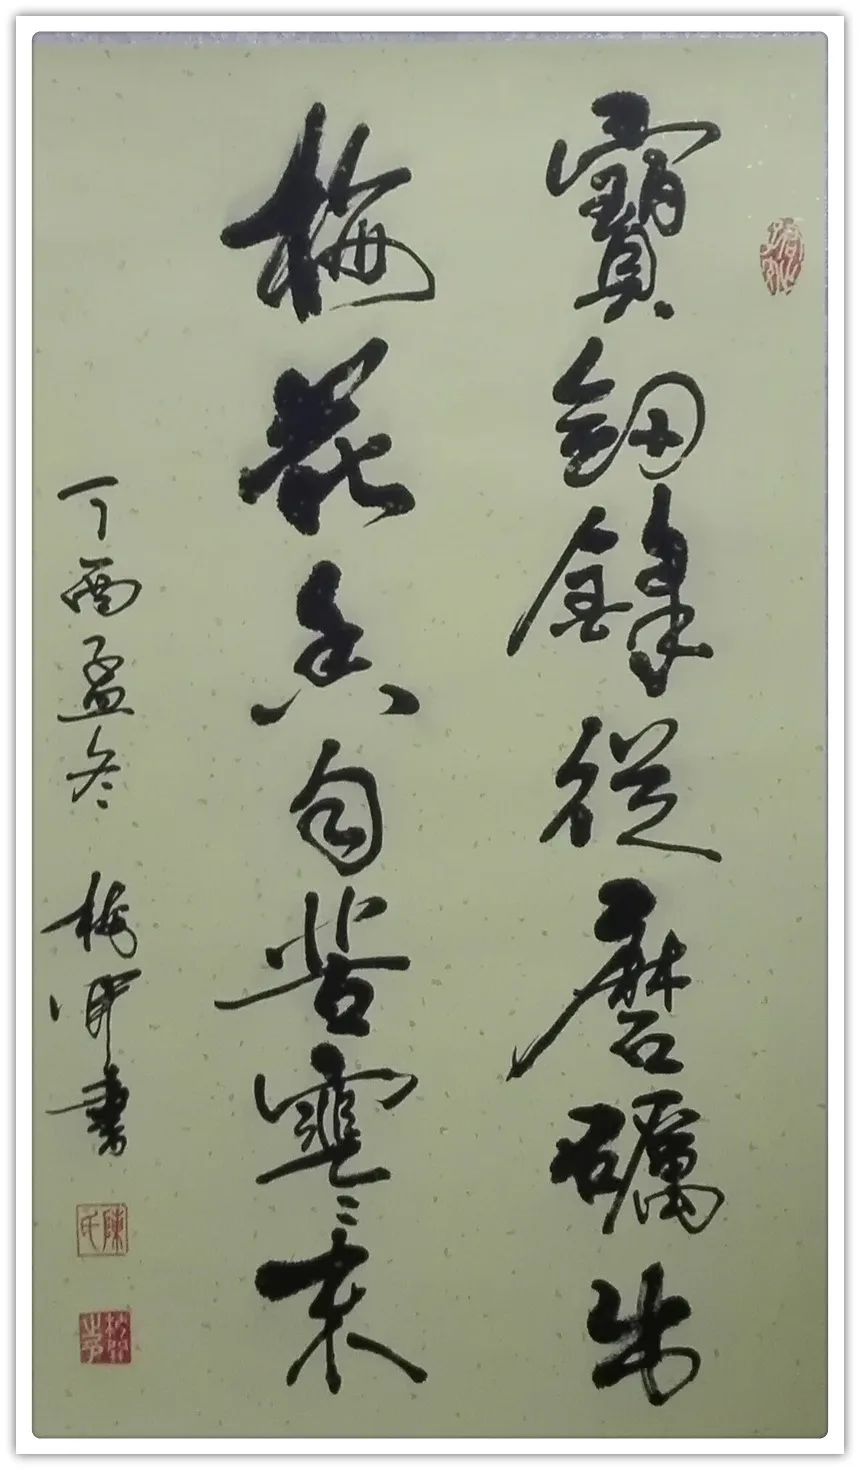 寶劍鋒從磨礪出
梅花香自苦寒來
丁酉孟冬 梅卿書
陳氏